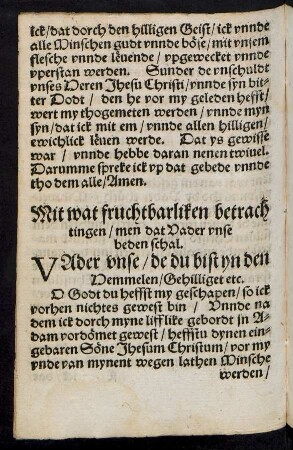 ick/dat dorch den hilligen Geist/ick vnnde
alle Minschen gudt vnnde böse/mit vnsem
flesche vnnde leuende/vpgewecket vnnde
vperstan werden. Sunder de vnschuldt
vnses Heren Jhesu Christi/vnnde syn bit-
ter Dodt/ den he vor my geleden hefft/
wert my thogemeten werden/vnnde myn
syn/dat ick mit em/vnnde allen hilligen/
ewichlick leuen werde. Dat ys gewisse
war/ vnnde hebbe daran nenen twiuel.
Darumme spreke ick vp dat gebede vnnde
tho dem alle/Amen.
Mit wat fruchtbarliken betrach
tingen/men dat Vader vnse
beden schal.
VAder vnse/de du bist yn den
Hemmelen/Gehilliget etc.
O Godt du heffst my geschapen/so ick
vorhen nichtes gewest bin/ Vnnde na
dem ick dorch myne lifflike gebordt jn A-
dam vordömet gewest/heffstu dynen ein-
gebaren Söne Jhesum Christum/vor my
vnde van mynent wegen lathen Minsche
werden/